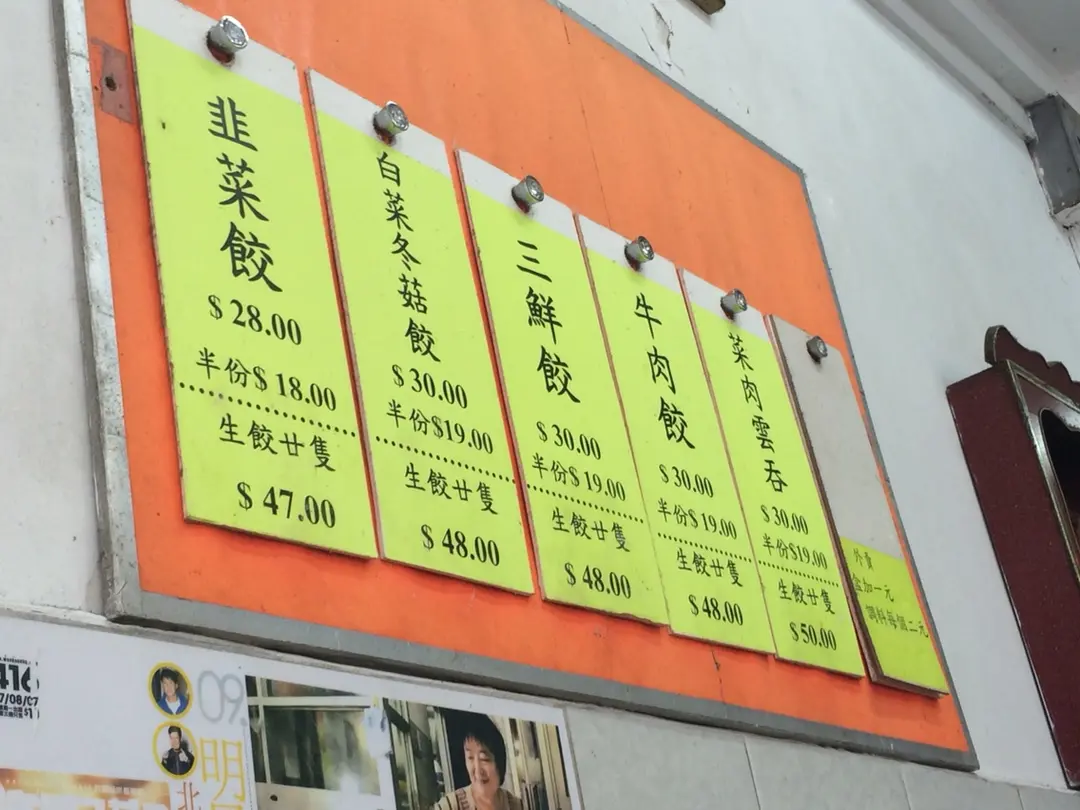 韭菜餃
$28.00
半份$18.00
生餃廿隻
$47.00
白菜冬菇餃
$30.00
半份$19.00
生餃廿隻
$48.00
三鮮餃
$30.00
半份$19.00
生餃廿隻
$48.00
牛肉餃
$30.00
半份$19.00
生餃廿隻
$48.00
菜肉雲吞
$30.00
半份$19.00
生餃廿隻
$50.00
外賣
盒加一元
調料每個二元
416
7/08/07
09.
明
北